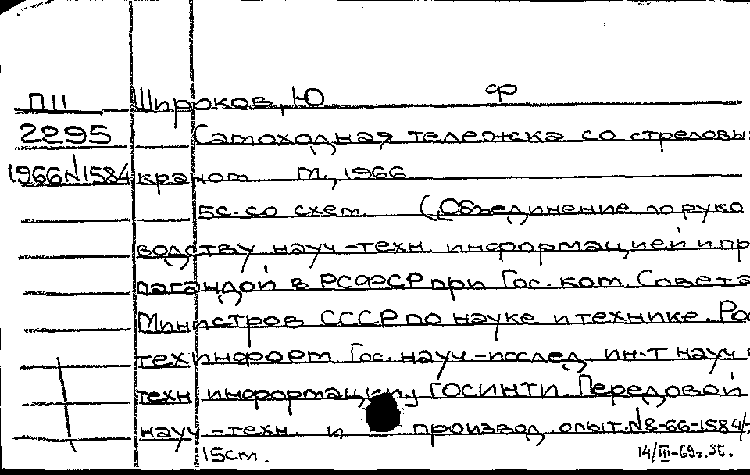 П11 Широков, Ю ф
2295 Самоходная тележка со стреловы
1966 N1584 краном М., 1966
5с. со схем. (Объединение по руко
водству науч-техн. информацией и пр
пагандой в РСФСР при Гос. ком. Совета
Министров СССР по науке и технике. Рос
техинформ. Гос. науч-исслед. ин-т науч и
техн информации ГОСИНТИ. Передовой
науч-техн. и производ. опыт. N8-66-1584/
15см. 14/III-69г.